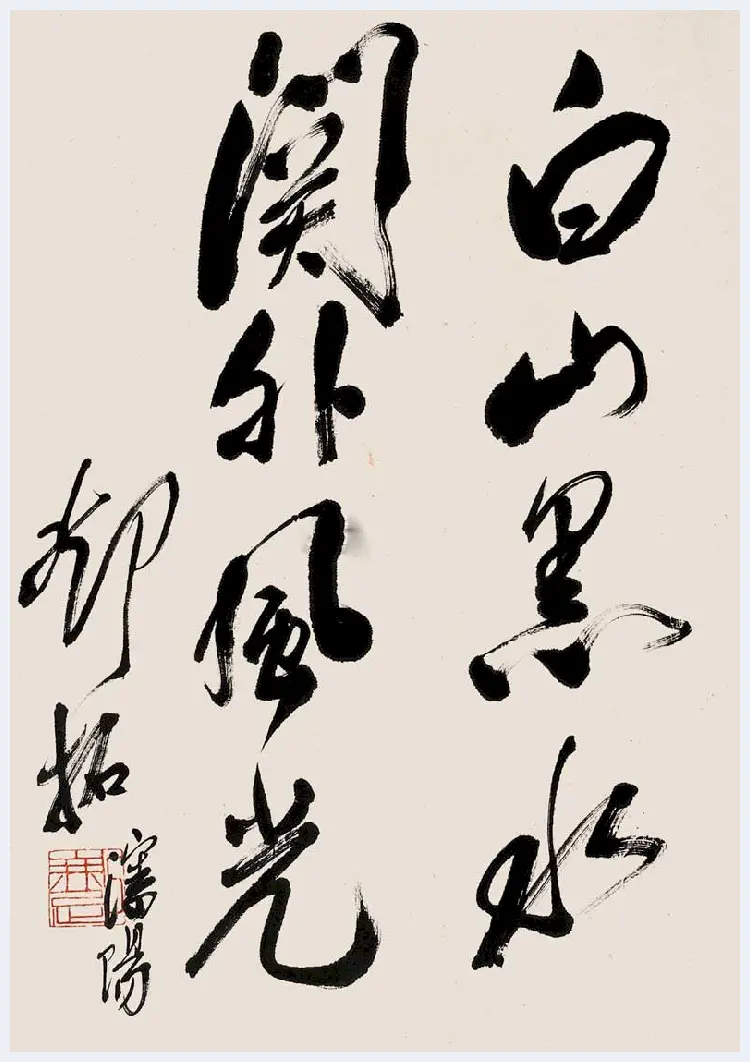 白山黑水
關外風光
鄧拓
瀋陽